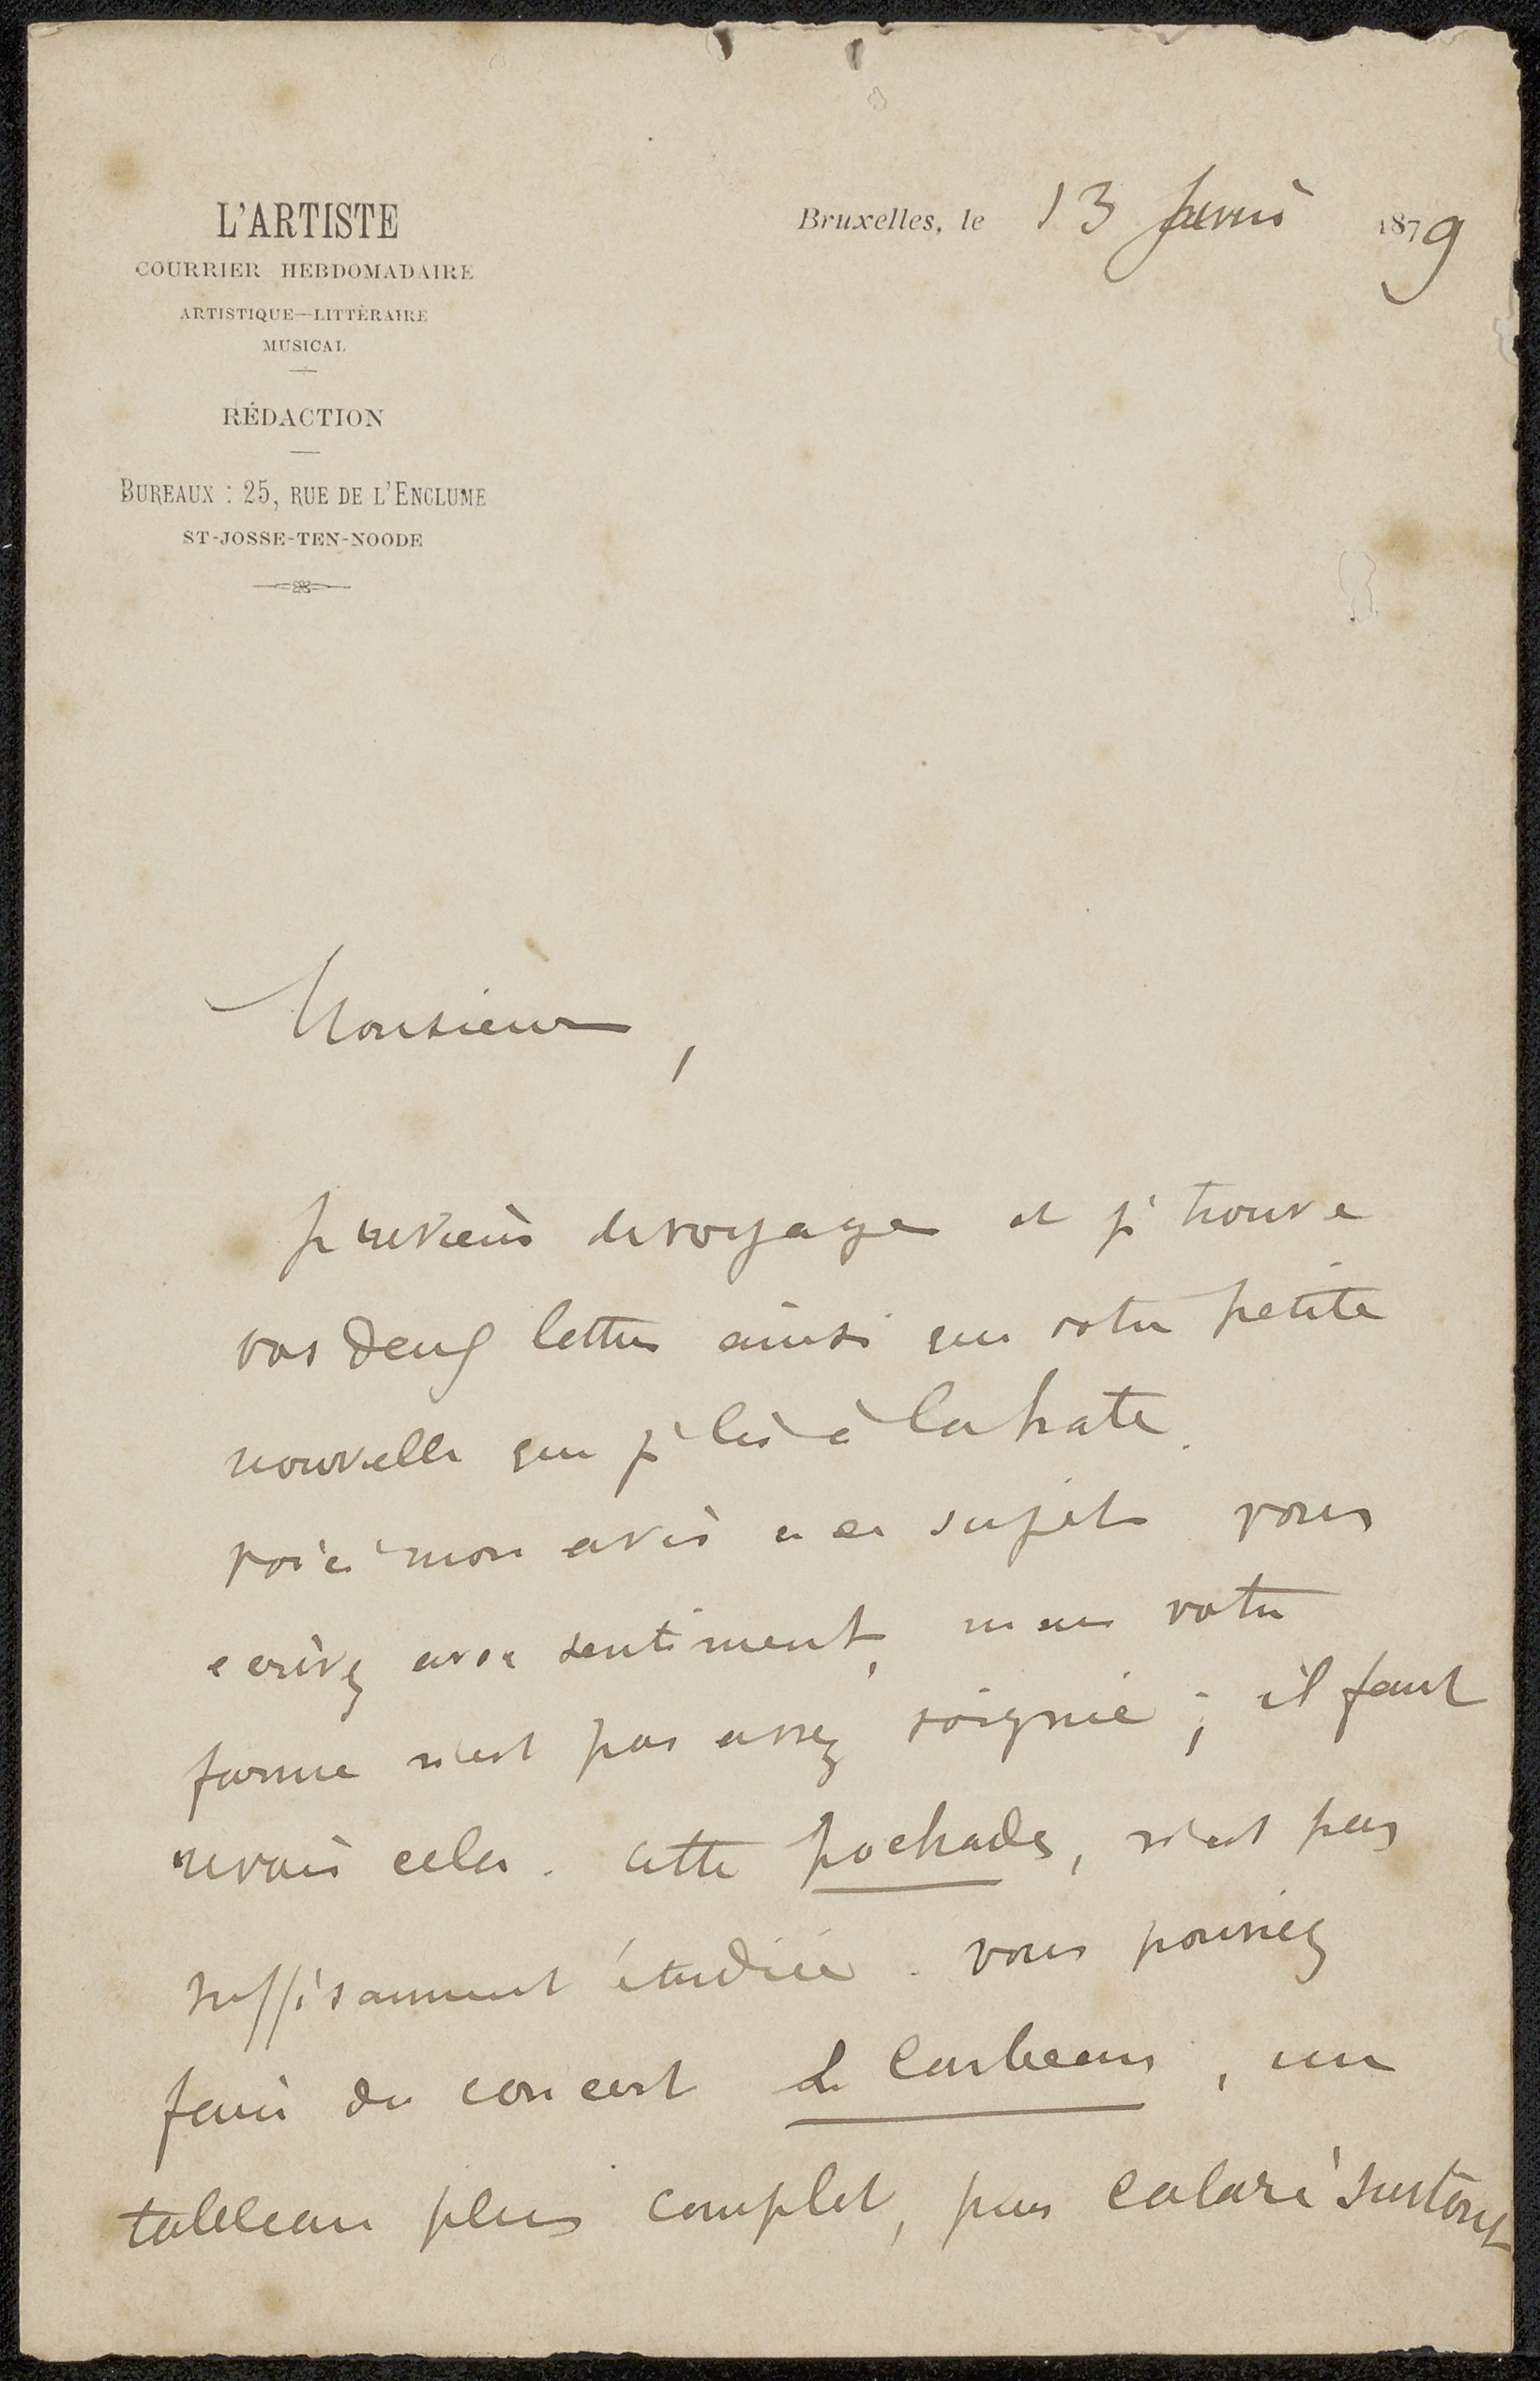 L'ARTISTE
COURRIER HEBDOMADAIRE
ARTISTIQUE—LITTÉRAIRE
MUSICAL
RÉDACTION
BUREAUX : 25, RUE DE L'ENCLUME
ST-JOSSE-TEN-NOODE
Bruxelles, le 13 1879
Monsieur,
Je reviens de voyage et je trouve
vos deux lettres ainsi que votre petite
nouvelle que je lis à la hate.
voici mon avis à ce sujet vous
ecrivez avec sentiment, mais votre
forme n'est pas assez soignée ; il faut
revoir cela. cette pochade, n'est pas
suffisamment étudiée. vous pourriez
faire du concert de Corbeaux, un
tableau plus complet, plus coloré surtout